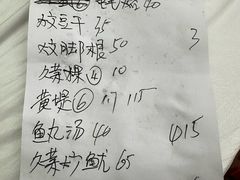 40
炆豆干 35
炆脚根 50 3
久菜粿④ 10
黄堤⑥ 117 115
鱼丸汤 40 415
久菜炒鱿 65